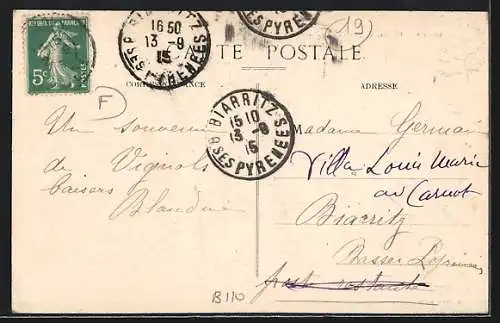 19
BIARRITZ
16 50
13 -9
15
BSES PYRENEES
CARTE POSTALE
CORRESPONDANCE
ADRESSE
5c
POSTES
F
BIARRITZ
15 10
13 -9
15
BSES PYRENEES
Un souvenir
de Vignols
baisers
Blandine
Madame Germain
Villa Louis Marie
av Carnot
Biarritz
Basses Pyrénées
poste restante
B110